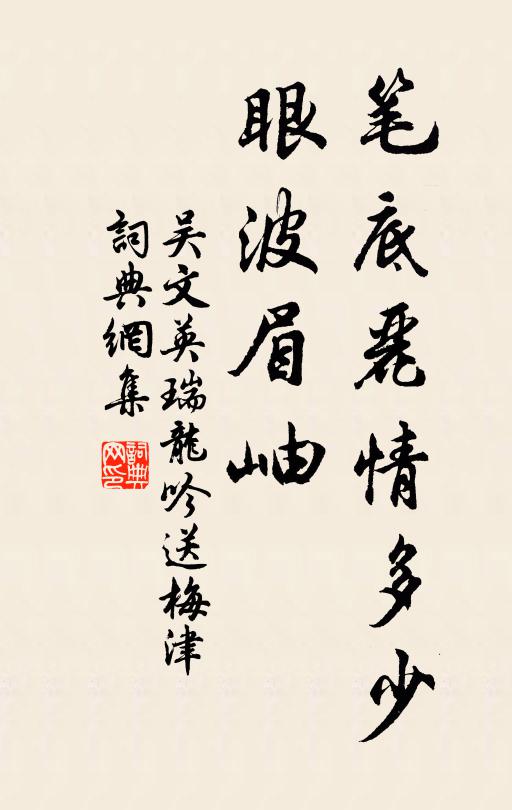 笔底麗情多少
眼波眉岫
吴文英瑞龍吟送梅津
詞典網集
詞典
网印